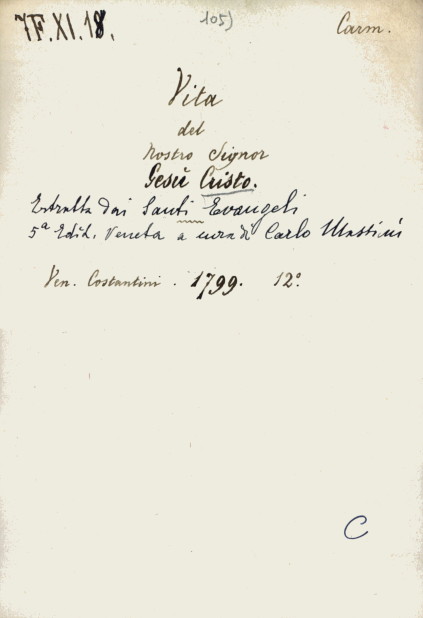 7F.XI.18. 105) Carm.
Vita
del
Nostro Signor
Gesù Cristo.
Estratta dai Santi Evangeli
5ª Ediz. Veneta a cura di Carlo Mastini
Ven. Costantini. 1799. 12º
C